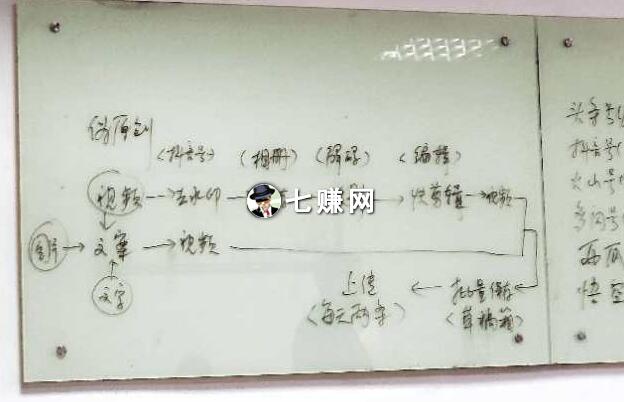 伪原创
(抖音号) (相册) (解码) (编辑)
视频 → 去水印 — → 快剪辑 → 视频
七赚网
图片 → 文案 → 视频
文字
上传 ← 批量保存
(每天两条) (草稿箱)
头条号
抖音号
火山号
西瓜
悟空